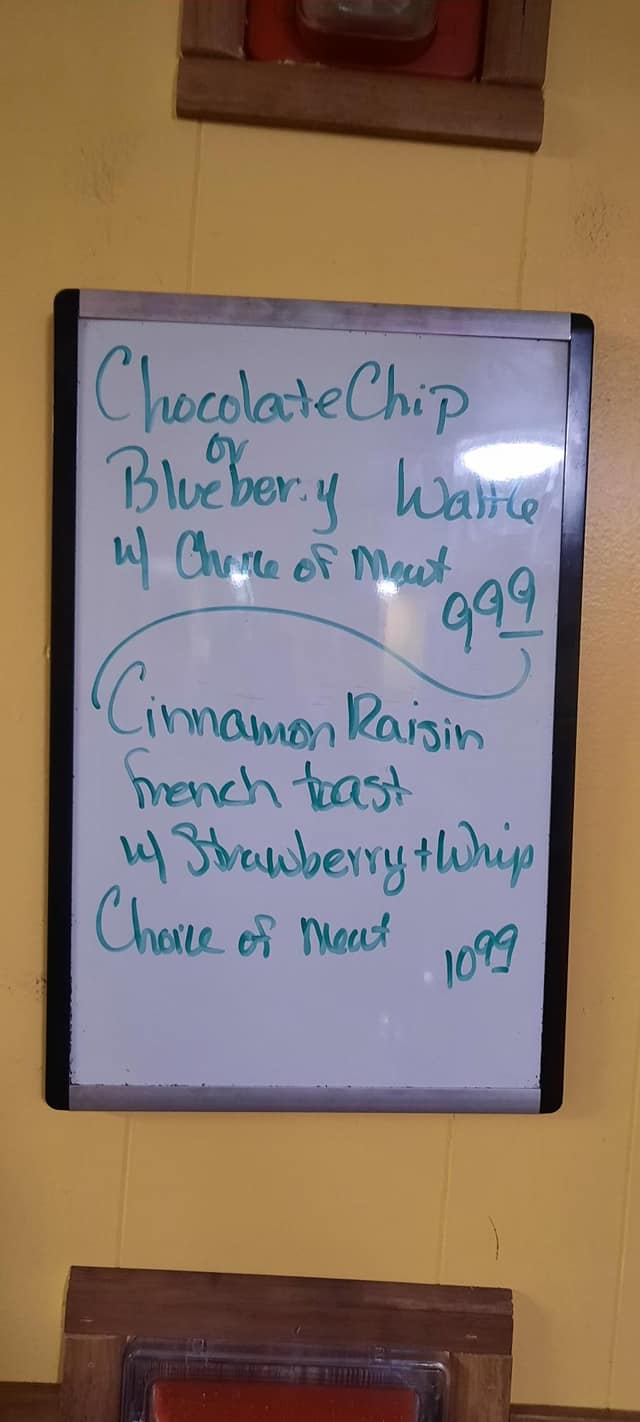 Chocolate Chip
or
Blueberry Waffle
w/ Choice of Meat
9.99
Cinnamon Raisin
french toast
w/ Strawberry + Whip
Choice of Meat
10.99